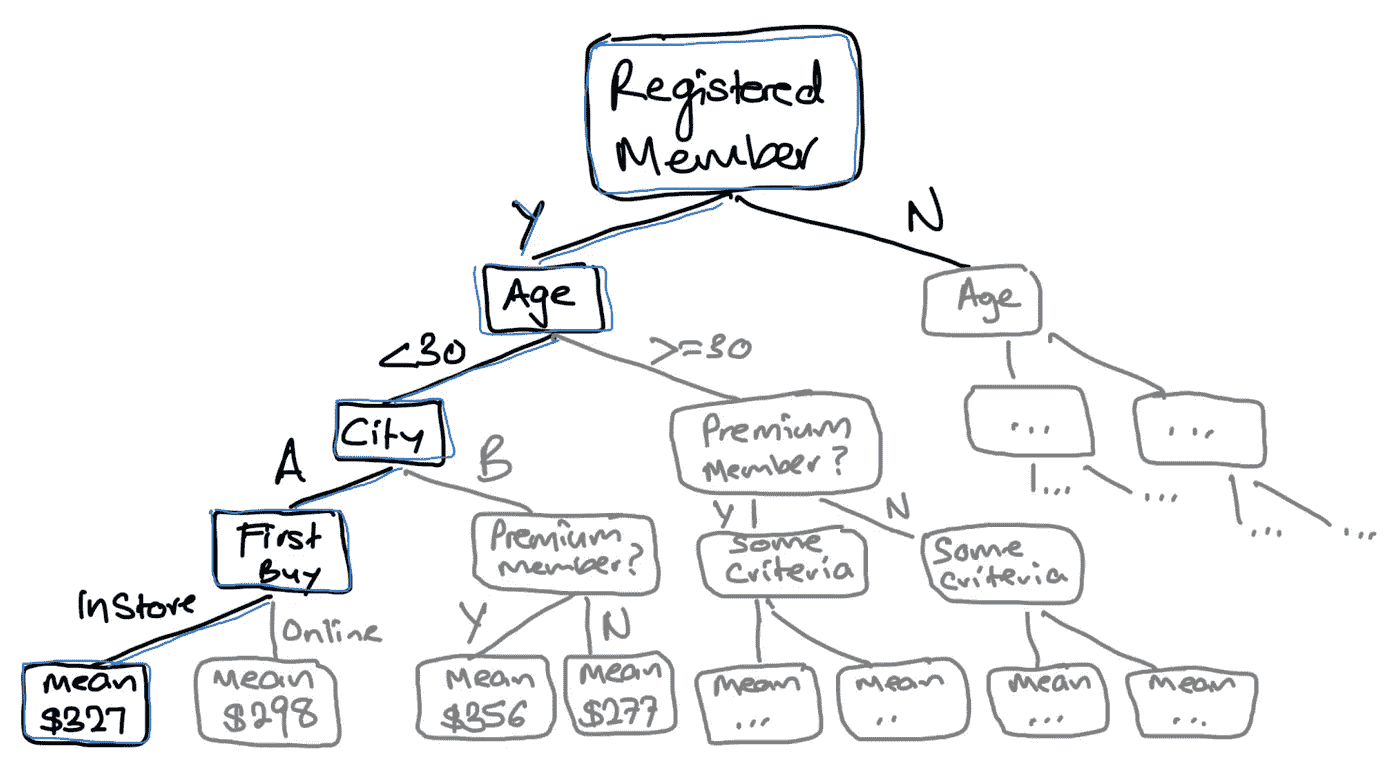 Registered
Member
Y
N
Age
Age
<30
>=30
City
Premium
Member?
...
...
A
B
Y
N
...
...
...
...
First
Buy
Premium
member?
Some
Criteria
Some
Criteria
InStore
Online
Y
N
mean
$327
mean
$298
Mean
$356
mean
$277
mean
...
mean
..
mean
...
mean
...